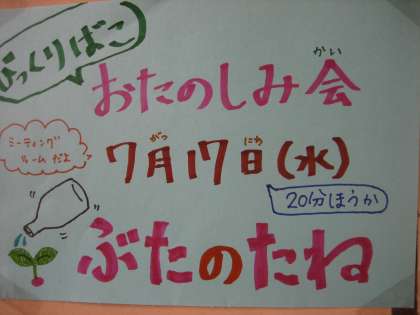 びっくりばこ
おたのしみ会
かい
ミーティング
ルームだよ
7月17日(水)
がつ
にち
20分ほうか
ぶたのたね